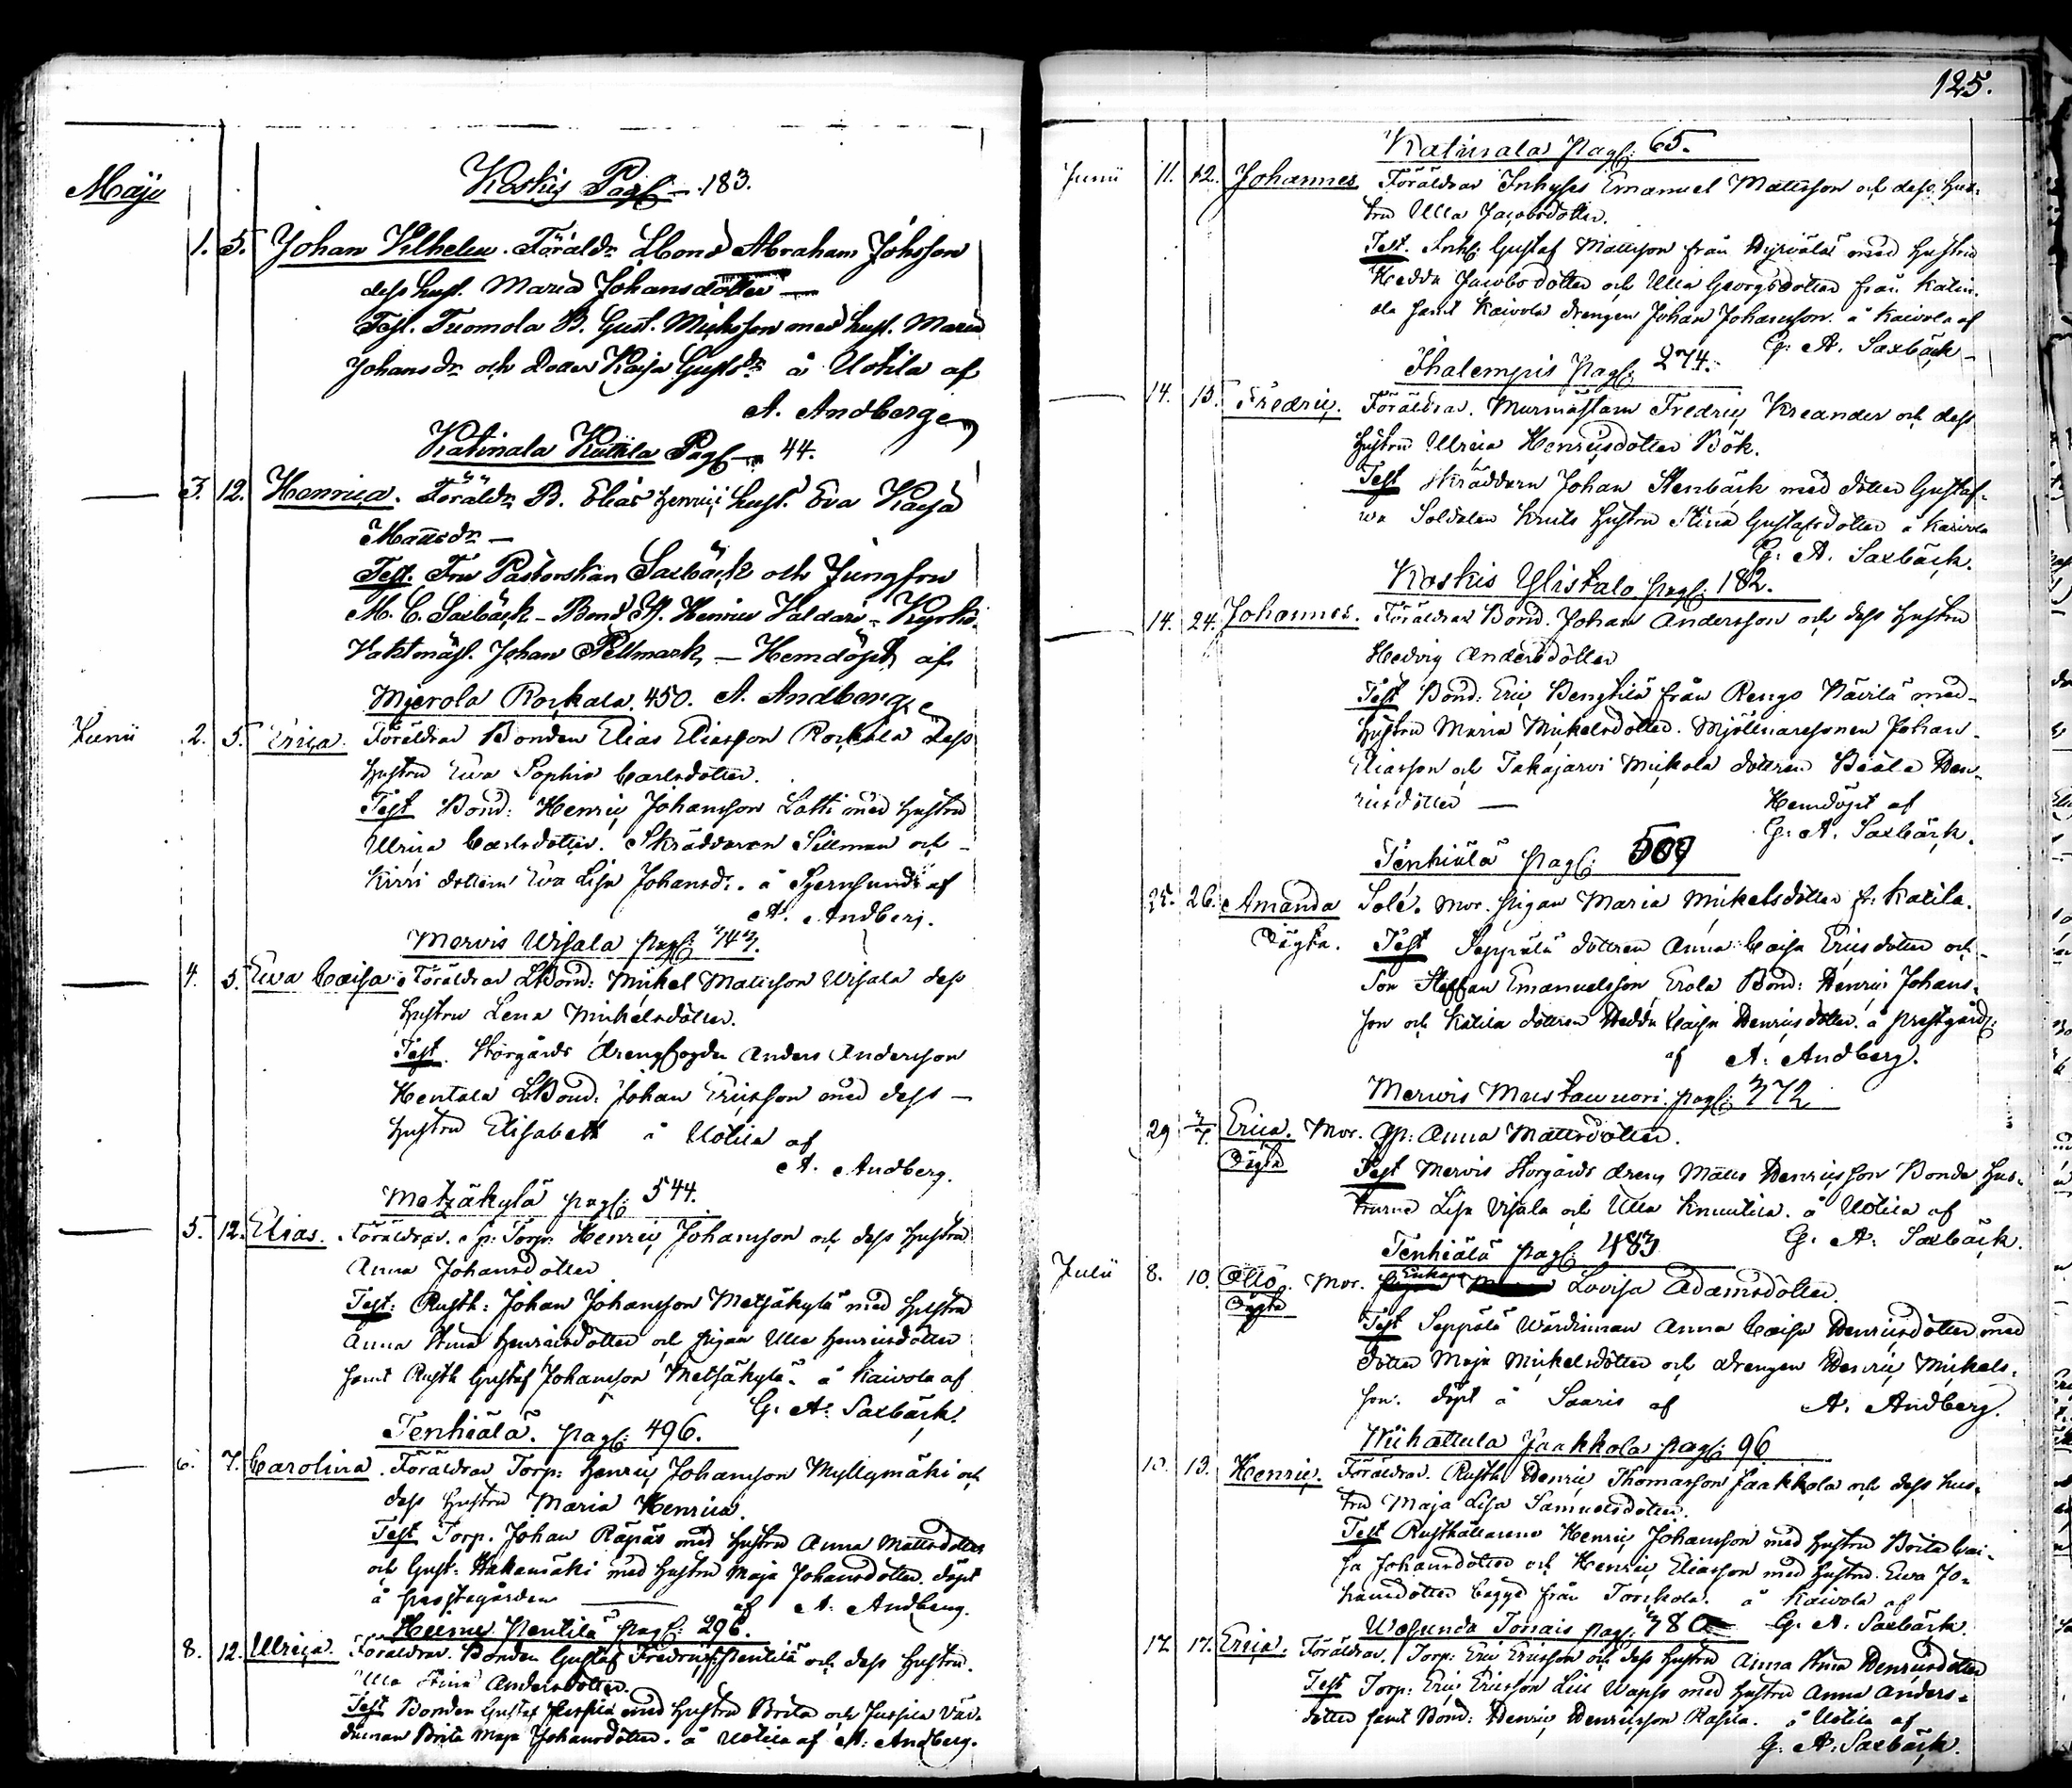 Koskis Pag: 183.
Maju
1. 5. Johan Vilhelm. Föräldr: LBond Abraham Johsson
dess hust. Maria Johansdotter —
Test. Tuomola B. Gust. Michsson med hust. Maria
Johansdr och Dotter Kaisa Gustdr å Uotila af
A. Andberg
Katinala Pag: 44.
— 3. 12. Henrica. Föräldr B. Elias Henrici hust. Eva Kaisa
Mattsdr —
Test. Fru Pastorskan Saxbäck och Jungfru
M. C. Saxbäck – Bond H. Henric Valdari – Kyrko.
Vaktmäst. Johan Pellmark, — Hemdöpt af
Mierola Rockala. 450. A. Andberg
Junii 2. 5. Erica. Föräldrar Bonden Elias Eliasson Rockala dess
hustru Eva Sophia Carlsdotter.
Test Bond: Henric Johansson Latti med hustru
Ulrica Carlsdotter. Skräddaren Sillman och –
Kirri dottern Eva Lisa Johansdr. å af
A. Andberg.
Mervis Wisala pag: 343.
— 4. 5. Eva Caisa. Föräldrar LBond: Mickel Mattsson Wisala dess
hustru Lena Mickelsdotter.
Test. Storgårds drengfogden Anders Andersson
Hentala LBond: Johan Ericsson med dess —
hustru Elisabeth å Uotila af
A. Andberg.
Metzäkylä pag: 544.
— 5. 12. Elias. Föräldrar. Sp: Torp: Henric Johansson och dess hustru
Anna Johansdotter
Test: Rusth: Johan Johansson Metsäkylä med hustru
Anna Stina Henricsdotter och pigan Ulla Henricsdotter
samt Rusth Gustaf Johansson Metsäkylä. å Kaivola af
G. A. Saxbäck.
Tenhiälä. pag: 496.
— 6. 7. Carolina. Föräldrar Torp: Henric Johansson Myllymäki och
dess hustru Maria Henrica.
Test Torp. Johan Räpäs med hustru Anna Mattsdotter
och Gust: Hakamäki med hustru Maja Johansdotter. döpt
å prestegården — af A. Andberg.
Heinu Pentilä pag: 296.
8. 12. Ulrica. Föräldrar. Bonden Gustaf Fredrics. Pentilä och dess hustru.
Ulla Stina Andersdotter.
Test Bonden Gustaf med hustru Brita och Jussila Vär-
dinnan Brita Maja Johansdotter. å Uotila af A. Andberg.
125.
Katinala pag: 65.
Junii 11. 12. Johannes Föräldrar Inhyses Emanuel Mattsson och dess hus-
tru Ulla Jacobsdotter.
Test. Inh: Gustaf Mattsson från med hustru
Hedda Jacobsdotter och Ulla Georgsdotter från Katin-
ala samt Kaivola drengen Johan Johansson. å Kaivola af
G. A. Saxbäck –
Ihalempis pag: 274.
— 14. 15. Fredric. Föräldrar. Murmästarn Fredric Kreander och dess
hustru Ulrica Henricsdotter Bök.
Test Skräddarn Johan Stenbäck med dotter Gustaf-
va Soldaten Kruts hustru Stina Gustafsdotter å Kaivola
G. A. Saxbäck.
Koskis Ylistalo pag: 182.
— 14. 24. Johannes. Föräldrar Bond. Johan Andersson och dess hustru
Hedvig Andersdotter
Test Bond: Eric Bengtilä från Rengo med –
hustru Maria Mickelsdotter. Mjölnaresonen Johan –
Eliasson och Takajärvi Mickola dottren Beata Hen-
ricsdotter — Hemdöpt af
G. A. Saxbäck.
Tenhiälä pag: 509
25. 26. Amanda Mor. pigan Maria Mickelsdotter fr. Katila.
Oägta. Test Seppälä dottren Anna Caisa Ericsdotter och –
Son Staffan Emanuelsson, Erola Bond: Henric Johans-
son och Katila dottren Hedda Caisa Henricsdotter. å prestgård:
af A. Andberg.
Mervis Mustanuori pag: 372
29 3/7. Erica. Mor. Anna Mattsdotter.
Oägta Test Mervis Storgårds dreng Matts Henricsson Bonde hus-
trurna Lisa Visala och Ulla Knuutila. å Uotila af
G. A. Saxbäck.
Tenhiälä pag: 483
Julii 8. 10. Otto. Mor. Enkan Lovisa Adamsdotter.
Oägta Test Seppälä Wärdinnan Anna Caisa Henricsdotter med
dotter Maja Mickelsdotter och drengen Henric Mickels-
son. döpt å Saaris af A. Andberg.
Wihattula Jaakkola pag: 96
10. 13. Henric. Föräldrar. Rusth: Henric Thomasson Jaakkola och dess hus-
tru Maja Lisa Samuelsdotter.
Test Rusthållarene Henric Johansson med hustru Brita Cai-
sa Johansdotter och Henric Eliasson med hustru. Eva Jo-
hansdotter begge från Torikola. å Kaivola af
Wohunda Tonais pag: 380 G. A. Saxbäck.
12. 17. Erica. Föräldrar. Torp: Eric Ericsson och dess hustru Anna Stina Henricsdotter
Test Torp: Eric Ericsson Lill Wapss med hustru Anna Anders-
dotter samt Bond: Henric Henricsson Rasila. å Uotila af
G. A. Saxbäck.